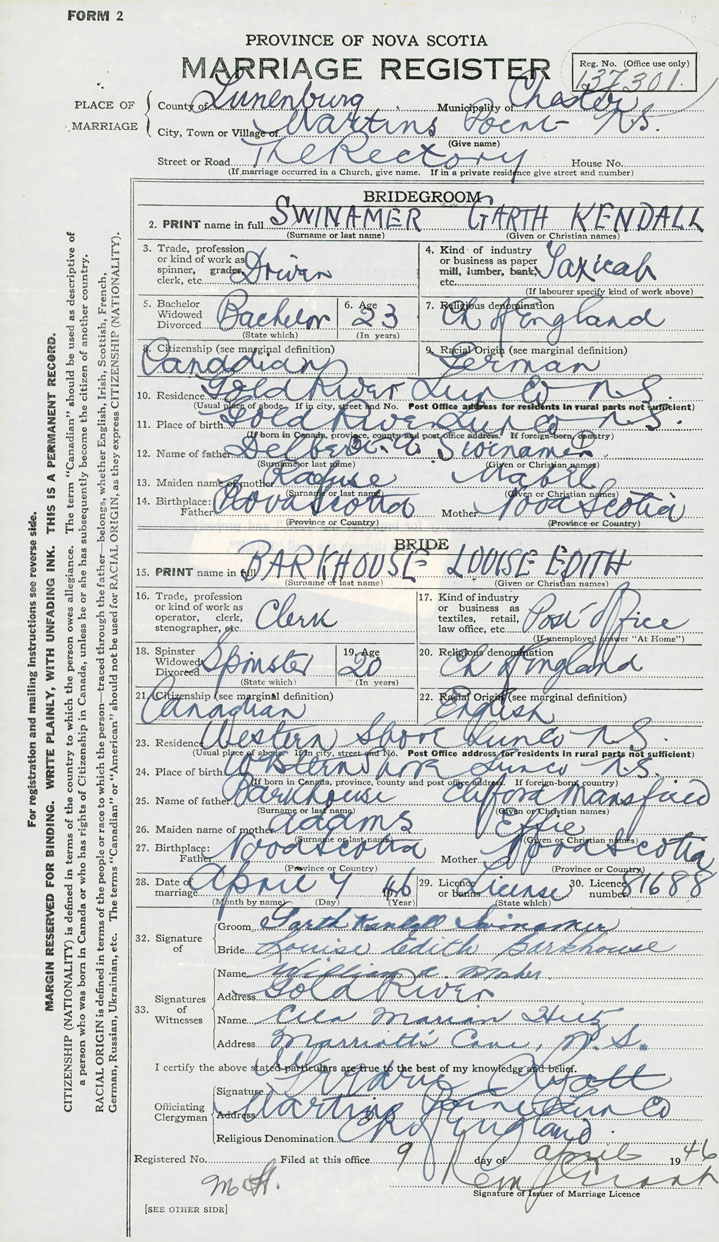 FORM 2
PROVINCE OF NOVA SCOTIA
MARRIAGE REGISTER
Reg. No. (Office use only)
137301.
PLACE OF MARRIAGE
County of Lunenburg Municipality of Chester
City, Town or Village of Martins Point N.S.
(Give name)
Street or Road The Rectory House No.
(If marriage occurred in a Church, give name. If in a private residence give street and number)
BRIDEGROOM
2. PRINT name in full SWINAMER GARTH KENDALL
(Surname or last name) (Given or Christian names)
3. Trade, profession or kind of work as spinner, grader, clerk, etc. Driver
4. Kind of industry or business as paper mill, lumber, bank, etc. Taxicab
(If labourer specify kind of work above)
5. Bachelor Widowed Divorced Bachelor
(State which)
6. Age 23
(In years)
7. Religious denomination Ch of England
8. Citizenship (see marginal definition) Canadian
9. Racial Origin (see marginal definition) German
10. Residence Gold River Lun Co N.S.
(Usual place of abode. If in city, street and No. Post Office address for residents in rural parts not sufficient)
11. Place of birth Gold River Lun Co N.S.
(If born in Canada, province, county and post office address. If foreign-born, country)
12. Name of father Delbert Swinamer
(Surname or last name) (Given or Christian names)
13. Maiden name of mother Rafuse Mabel
(Surname or last name) (Given or Christian names)
14. Birthplace: Father Nova Scotia Mother Nova Scotia
(Province or Country) (Province or Country)
BRIDE
15. PRINT name in full BARKHOUSE LOUISE EDITH
(Surname or last name) (Given or Christian names)
16. Trade, profession or kind of work as operator, clerk, stenographer, etc. Clerk
17. Kind of industry or business as textiles, retail, law office, etc. Post Office
(If unemployed answer "At Home")
18. Spinster Widowed Divorced Spinster
(State which)
19. Age 20
(In years)
20. Religious denomination Ch of England
21. Citizenship (see marginal definition) Canadian
22. Racial Origin (see marginal definition) English
23. Residence Western Shore Lun Co N.S.
(Usual place of abode. If in city, street and No. Post Office address for residents in rural parts not sufficient)
24. Place of birth Western Shore Lun Co N.S.
(If born in Canada, province, county and post office address. If foreign-born, country)
25. Name of father Barkhouse Clifford Mansfield
(Surname or last name) (Given or Christian names)
26. Maiden name of mother Adams Effie
(Surname or last name) (Given or Christian names)
27. Birthplace: Father Nova Scotia Mother Nova Scotia
(Province or Country) (Province or Country)
28. Date of marriage April 9 46
(Month by name) (Day) (Year)
29. Licence or banns License
(State which)
30. Licence number 81688
32. Signature of
Groom Garth Kendall Swinamer
Bride Louise Edith Barkhouse
33. Signatures of Witnesses
Name William A. Maher
Address Gold River
Name Cila Marian Hiltz
Address Marriotts Cove, N.S.
I certify the above stated particulars are true to the best of my knowledge and belief.
Officiating Clergyman
Signature Ryatt
Address Martins Point Lun Co
Religious Denomination Ch of England
Registered No. Filed at this office 9 day of April 1946
Signature of Issuer of Marriage Licence
[SEE OTHER SIDE]
For registration and mailing instructions see reverse side.
MARGIN RESERVED FOR BINDING. WRITE PLAINLY, WITH UNFADING INK. THIS IS A PERMANENT RECORD.
CITIZENSHIP (NATIONALITY) is defined in terms of the country to which the person owes allegiance. The term "Canadian" should be used as descriptive of
a person who was born in Canada or who has rights of Citizenship in Canada, unless he or she has subsequently become the citizen of another country.
RACIAL ORIGIN is defined in terms of the people or race to which the person—traced through the father—belongs, whether English, Irish, Scottish, French,
German, Russian, Ukrainian, etc. The terms "Canadian" or "American" should not be used for RACIAL ORIGIN, as they express CITIZENSHIP (NATIONALITY).